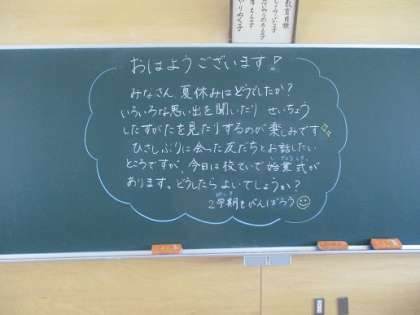 おはようございます！
みなさん、夏休みはどうでしたか？
いろいろな思い出を聞いたり せいちょう
したすがたを見たりするのが楽しみです
ひさしぶりに会った友だちとお話したい
ところですが、今日は校ていで始業式が
あります。どうしたらよいでしょうか？
2学期もがんばろう